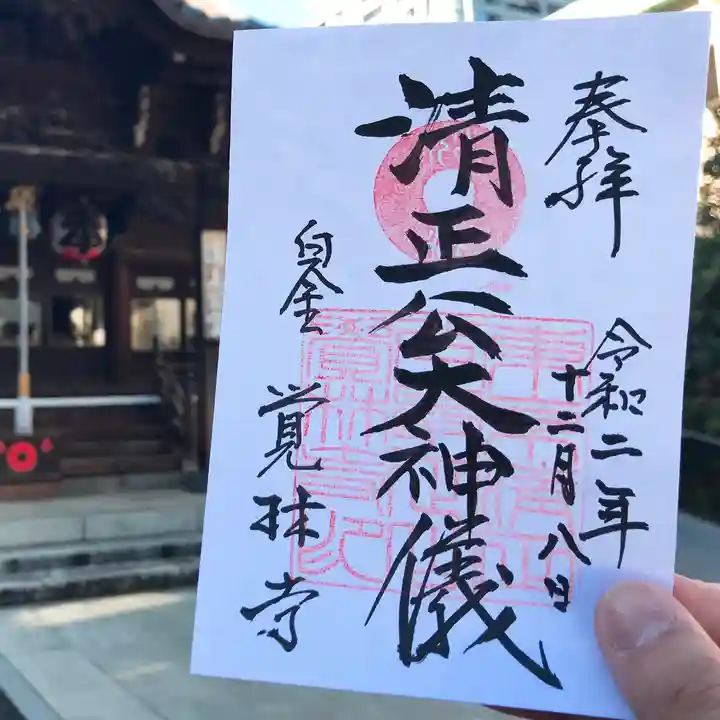 奉拝
令和二年
十二月八日
清正公大神儀
白金
覚林寺